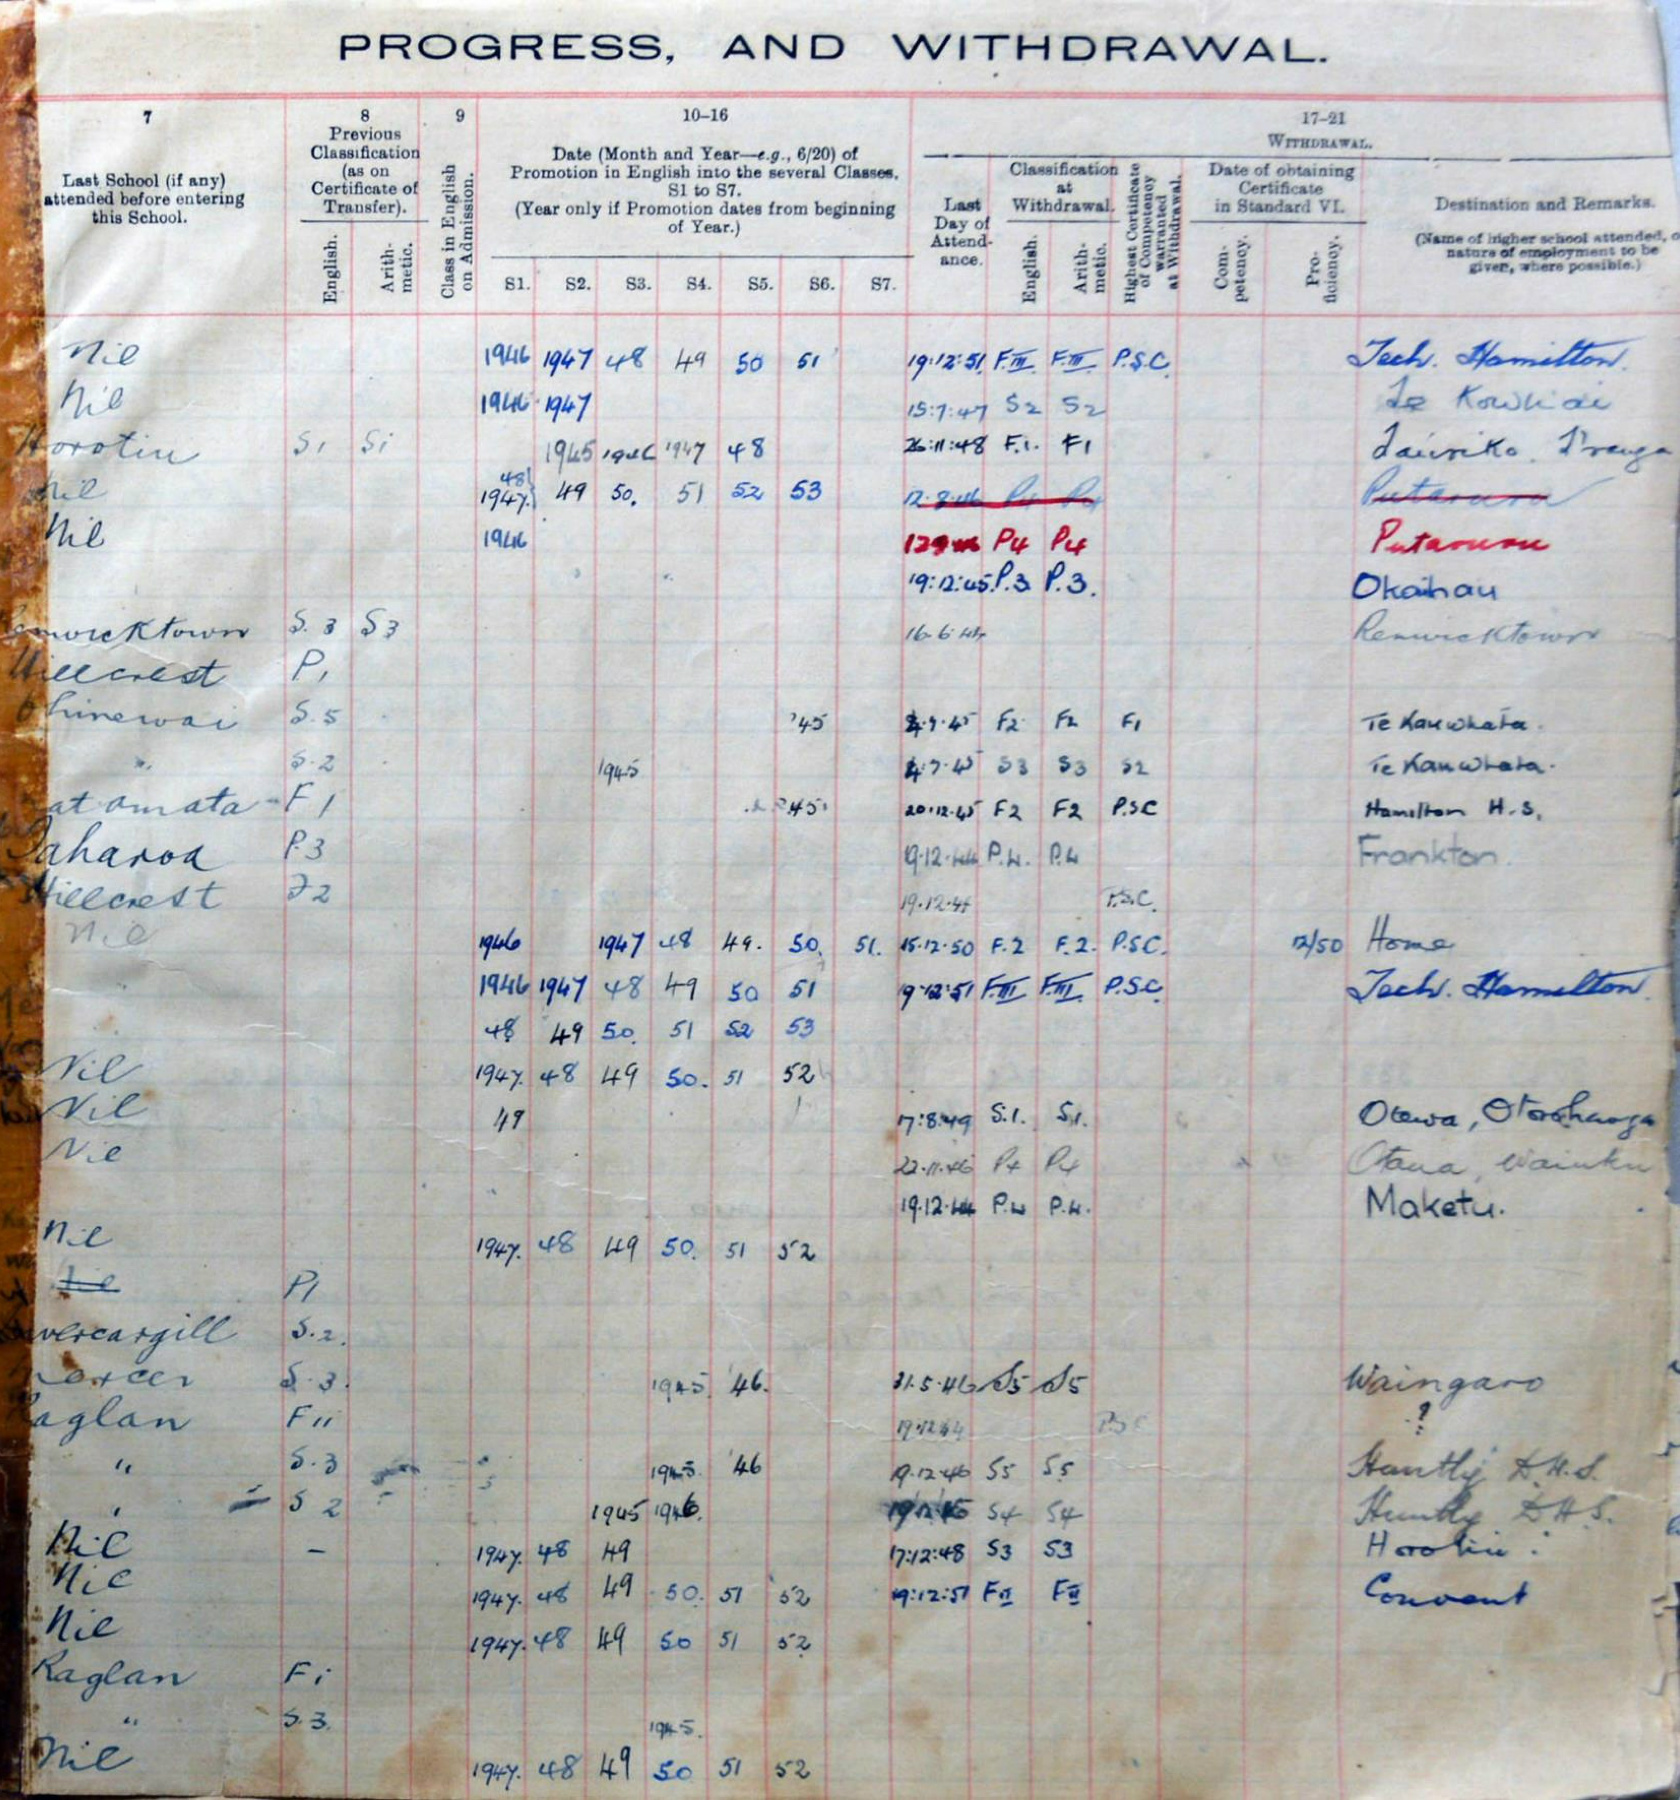 PROGRESS, AND WITHDRAWAL.
7 8 9 10–16 17–21
Last School (if any) attended before entering this School.
Previous Classification (as on Certificate of Transfer).
English. Arithmetic.
Class in English on Admission.
Date (Month and Year—e.g., 6/20) of Promotion in English into the several Classes, S1 to S7.
(Year only if Promotion dates from beginning of Year.)
S1. S2. S3. S4. S5. S6. S7.
WITHDRAWAL.
Last Day of Attendance.
Classification at Withdrawal.
English. Arithmetic.
Highest Certificate of Competency warranted at Withdrawal.
Date of obtaining Certificate in Standard VI.
Competency. Proficiency.
Destination and Remarks.
(Name of higher school attended, o nature of employment to be given, where possible.)
Nil 1946 1947 48 49 50 51 19:12:51 F.III F.III P.S.C. Tech. Hamilton.
Nil 1946 1947 15:7:47 S2 S2 Te Kowhai
Horotiu S1 S1 1945 1946 1947 48 26:11:48 F.1. F1 Tauriko. T'ranga
Nil 48 1947. 49 50. 51 52 53 12.8.46 P4 P4 Putaruru
Nil 1946 P4 P4 Putaruru
19:12:45 P.3 P.3. Okaihau
enwicktown S.3 S3 16.6.44 Renwicktown
Hillcrest P1
Ohinewai S.5 '45 4.7.45 F2 F2 F1 Te Kauwhata.
" S.2 1945 4.7.45 S3 S3 S2 Te Kauwhata.
atamata F1 45 20.12.45 F2 F2 P.S.C Hamilton H.S.
aharoa P.3 19.12.44 P.4. P.4 Frankton.
Hillcrest F2 19.12.44 P.S.C.
Nil 1946 1947 48 49. 50. 51. 15.12.50 F.2 F.2. P.S.C. 12/50 Home
1946 1947 48 49 50 51 19:12:51 F.III F.III P.S.C. Tech. Hamilton.
48 49 50. 51 52 53
Nil 1947. 48 49 50. 51 52
Nil 49 17:8:49 S.1. S1. Otewa, Otorohanga
Nil 22.11.46 P4 P4 Otaua, Waiuku
19.12.44 P.4 P.4. Maketu.
Nil 1947. 48 49 50. 51 52
P1
nvercargill S.2.
ercer S.3. 1945 '46. 31.5.46 S5 S5 Waingaro
Raglan F11 19.12.44 P.S.C ?
" S.3 1945. '46 19.12.46 S5 S5 Huntly D.H.S.
" S2 1945 1946. S4 S4 Huntly D.H.S.
Nil – 1947. 48 49 17:12:48 S3 S3 Horotiu.
Nil 1947. 48 49 50. 51 52 19:12:51 FII FII Convent
Nil 1947. 48 49 50 51 52
Raglan F1
" S.3. 1945.
Nil 1947. 48 49 50 51 52